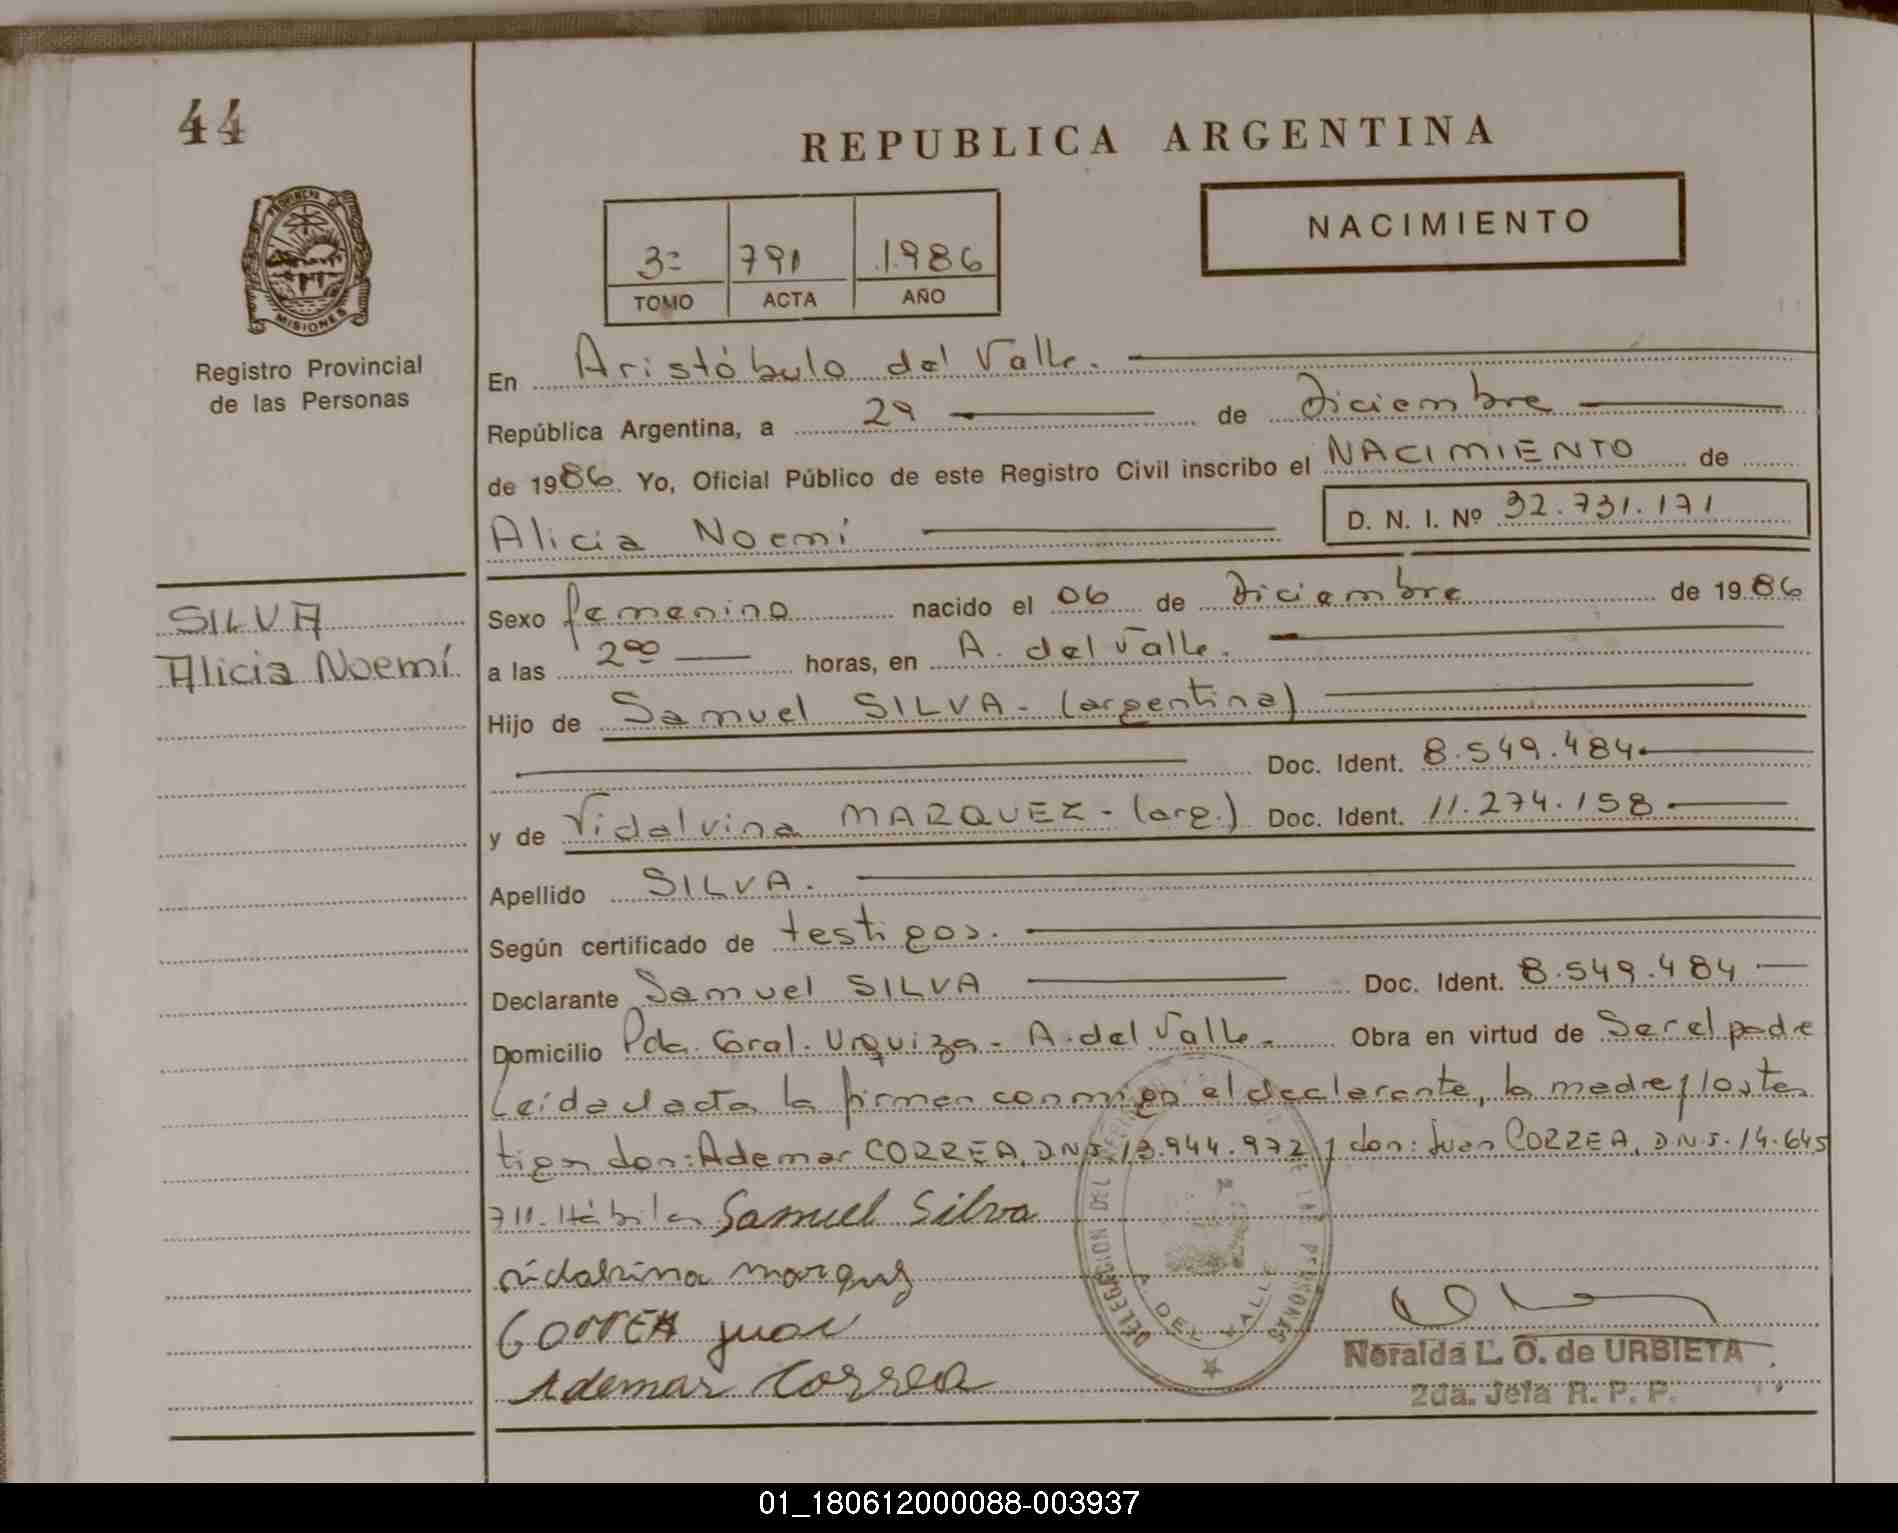 44
REPUBLICA ARGENTINA
PROVINCIA DE
MISIONES
Registro Provincial
de las Personas
3º 791 1986
TOMO ACTA AÑO
NACIMIENTO
En Aristóbulo del Valle.
República Argentina, a 29 de Diciembre
de 1986. Yo, Oficial Público de este Registro Civil inscribo el NACIMIENTO de
Alicia Noemí D. N. I. Nº 32.731.171
SILVA
Alicia Noemí
Sexo femenino nacido el 06 de Diciembre de 1986
a las 2⁰⁰ horas, en A. del Valle.
Hijo de Samuel SILVA - (argentina)
Doc. Ident. 8.549.484
y de Vidalvina MARQUEZ - (arg.) Doc. Ident. 11.274.158
Apellido SILVA.
Según certificado de testigos.
Declarante Samuel SILVA Doc. Ident. 8.549.484
Domicilio Pda. Gral. Urquiza - A. del Valle. Obra en virtud de Ser el padre
Leida el acta la firman conmigo el declarante, la madre y los tes
tigos don: Ademar CORREA, D.N.I. 13.944.972 y don: Juan CORREA, D.N.I. 14.645
711. Hábiles Samuel Silva
vidalvina marques
CorrEA juan
Ademar Correa
DELEGACION DEL LAS PERSONAS
A. DEL VALLE
Noralda L. O. de URBIETA
2da. Jefa R. P. P.
01_180612000088-003937